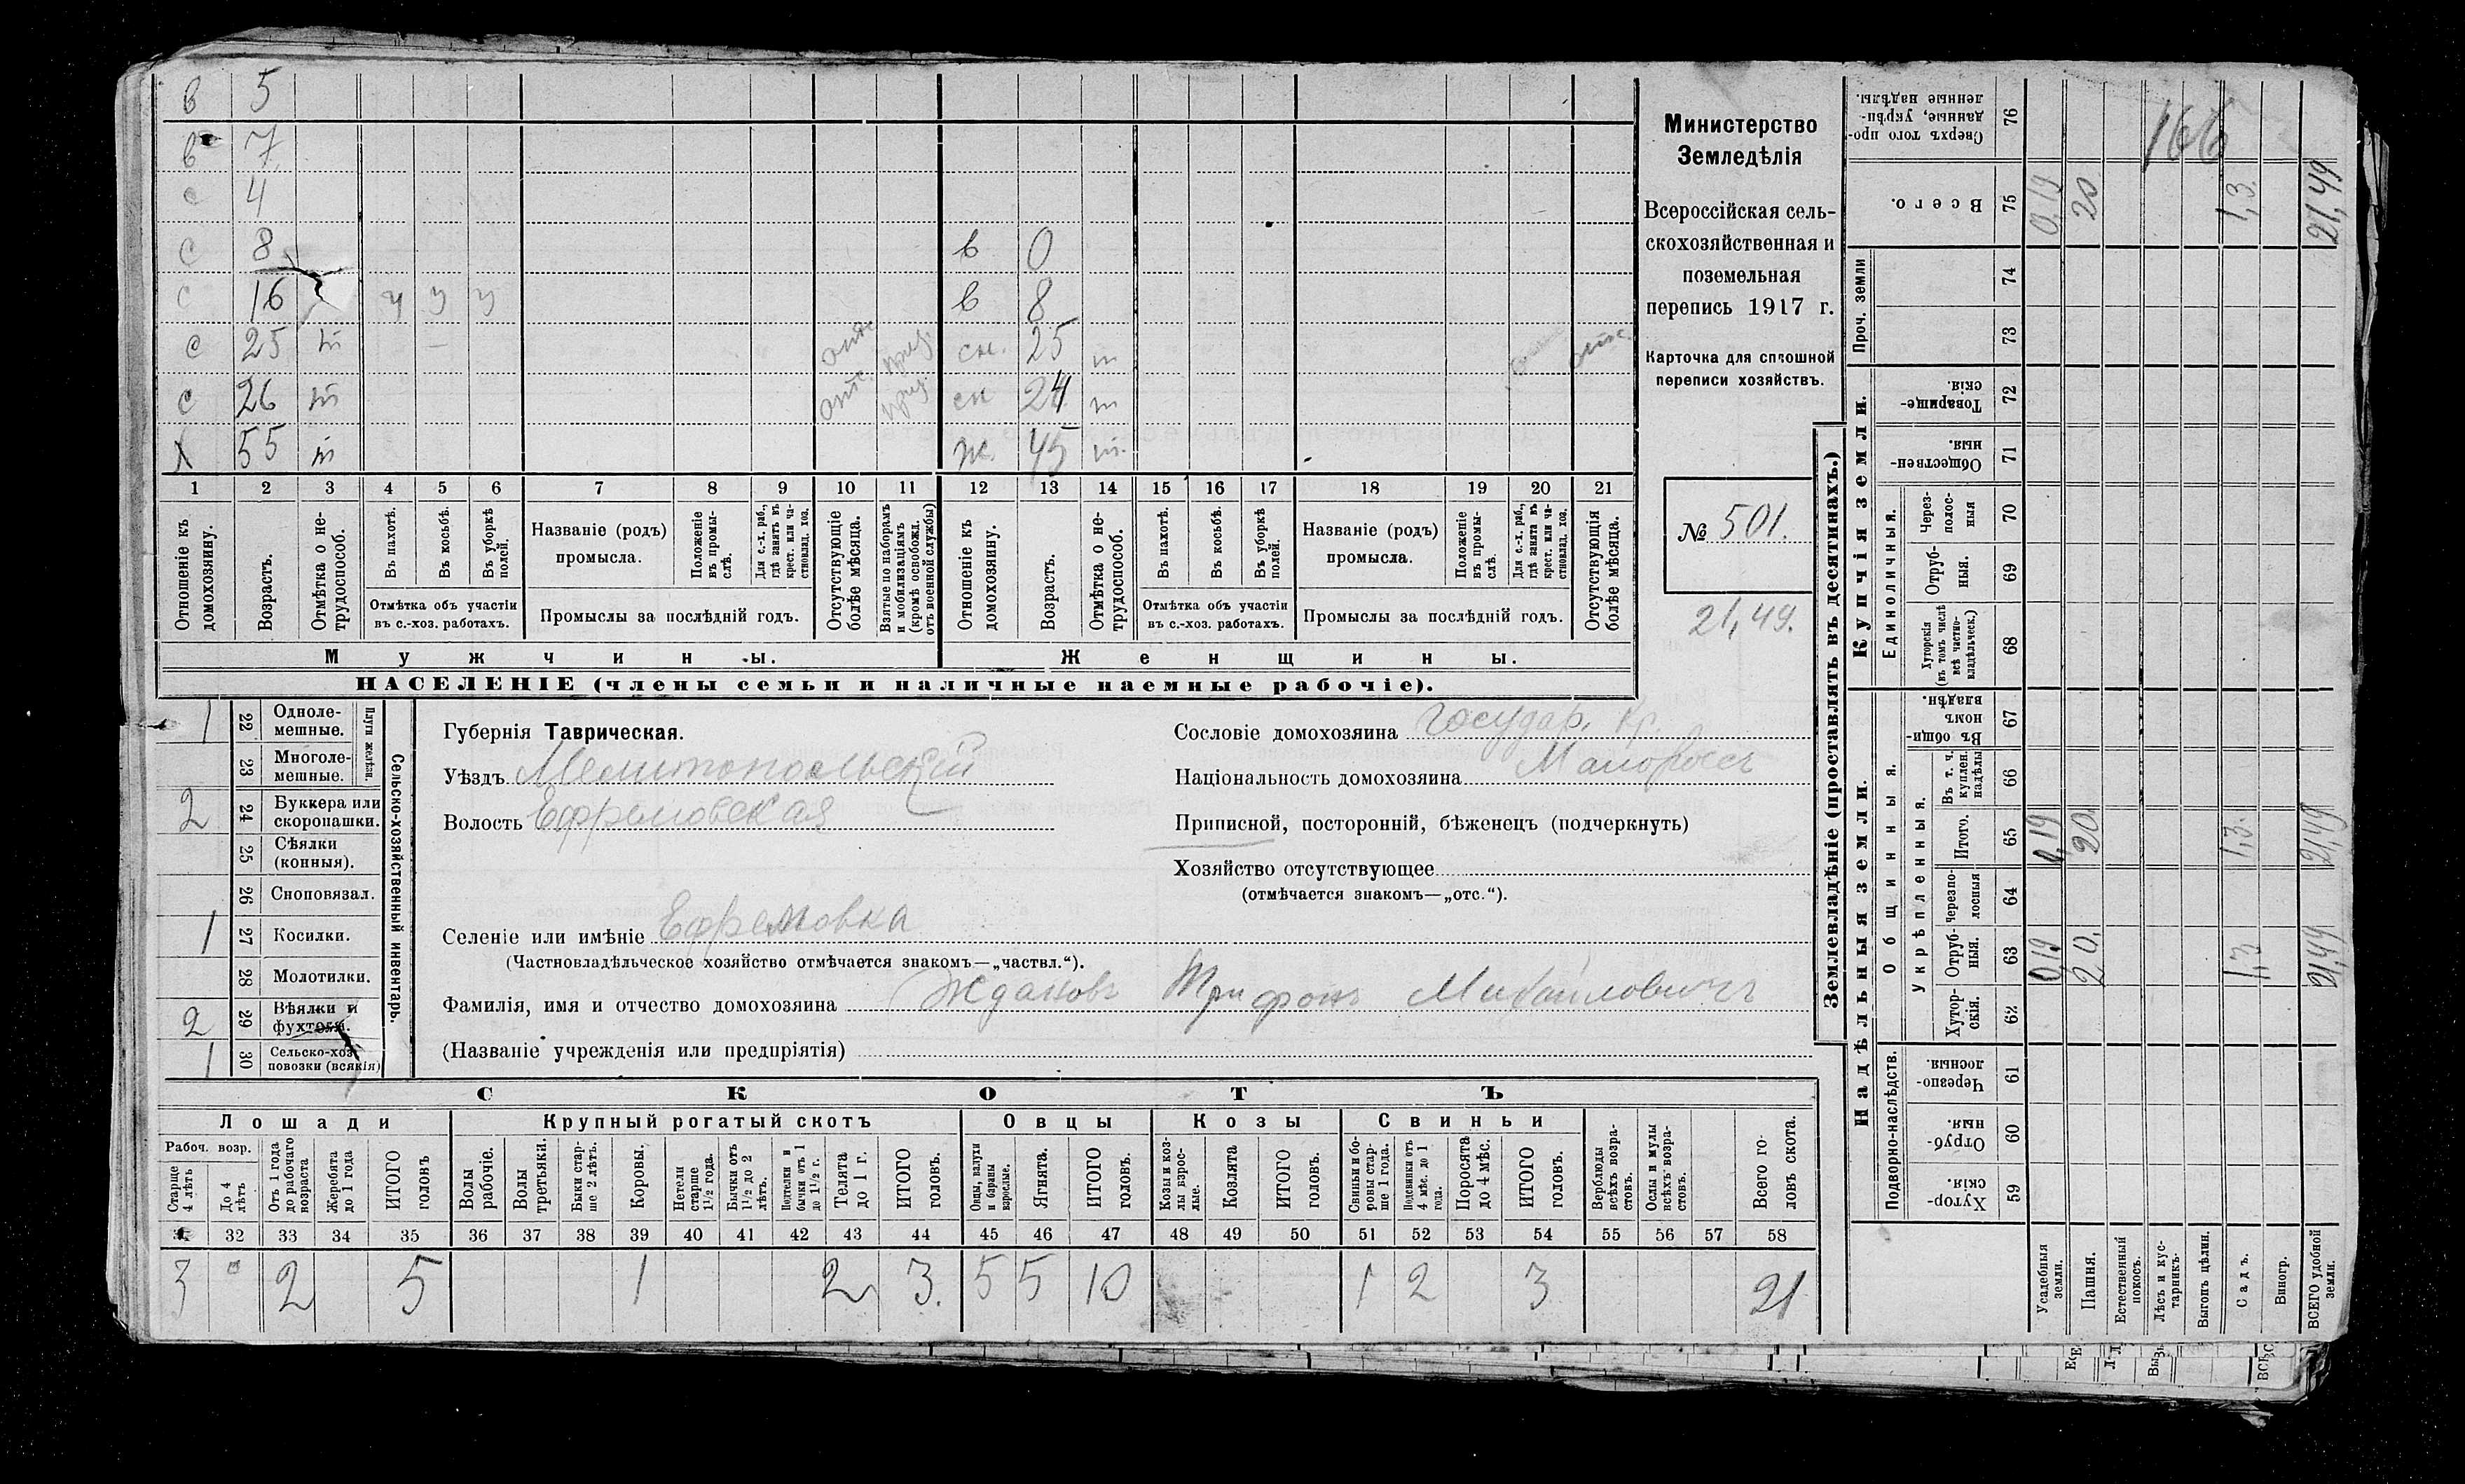 в 5
в 7
с 4
с 8 в 0
с 16 у у у в 8
с 25 т отс. приз. сн. 25 т отс.
с 26 т отс. приз. сн 24 т
Х 55 т ж. 45 т.
1 2 3 4 5 6 7 8 9 10 11 12 13 14 15 16 17 18 19 20 21
Отношеніе къ домохозяину.
Возрастъ.
Отмѣтка о не-
трудоспособ.
Въ пахотѣ.
Въ косьбѣ.
Въ уборкѣ
полей.
Отмѣтка объ участіи
въ с.-хоз. работахъ.
Названіе (родъ)
промысла.
Положеніе
въ промы-
слѣ.
Для с.-х. раб.,
гдѣ занятъ въ
крест. или ча-
стновлад. хоз.
Промыслы за послѣдній годъ.
Отсутствующіе
болѣе мѣсяца.
Взятые по наборамъ
и мобилизаціямъ
(кромѣ освобожд.
отъ военной службы)
Отношеніе къ
домохозяину.
Возрастъ.
Отмѣтка о не-
трудоспособ.
Въ пахотѣ.
Въ косьбѣ.
Въ уборкѣ
полей.
Отмѣтка объ участіи
въ с.-хоз. работахъ.
Названіе (родъ)
промысла.
Положеніе
въ промы-
слѣ.
Для с.-х. раб.,
гдѣ занята въ
крест. или ча-
стновлад. хоз.
Промыслы за послѣдній годъ.
Отсутствующія
болѣе мѣсяца.
Мужчины.
Женщины.
НАСЕЛЕНІЕ (члены семьи и наличные наемные рабочіе).
Министерство
Земледѣлія
Всероссійская сель-
скохозяйственная и
поземельная
перепись 1917 г.
Карточка для сплошной
переписи хозяйствъ.
№ 501.
21,49.
1 22 Одноле-
мешные.
23 Многоле-
мешные.
Плуги желѣзн.
2 24 Буккера или
скоропашки.
25 Сѣялки
(конныя).
26 Сноповязал.
1 27 Косилки.
28 Молотилки.
2 29 Вѣялки и
фухтеля.
1 30 Сельско-хоз.
повозки (всякія)
Сельско-хозяйственный инвентарь.
Губернія Таврическая.
Уѣздъ Мелитопольскій
Волость Ефремовская
Сословіе домохозяина Государ. Кр.
Національность домохозяина Малороссъ
Приписной, посторонній, бѣженецъ (подчеркнуть)
Хозяйство отсутствующее
(отмѣчается знакомъ—„отс.“).
Селеніе или имѣніе Ефремовка
(Частновладѣльческое хозяйство отмѣчается знакомъ—„частвл.“).
Фамилія, имя и отчество домохозяина Ждановъ Трифонъ Михайловичъ
(Названіе учрежденія или предпріятія)
СКОТЪ
Лошади Крупный рогатый скотъ Овцы Козы Свиньи
Рабоч. возр.
Старше
4 лѣтъ
До 4
лѣтъ
Отъ 1 года
до рабочаго
возраста
Жеребята
до 1 года
ИТОГО
головъ
Волы
рабочіе.
Волы
третьяки.
Быки стар-
ше 2 лѣтъ.
Коровы.
Нетели
старше
1½ года.
Бычки отъ
1½ до 2
лѣтъ.
Подтелки и
бычки отъ 1
до 1½ г.
Телята
до 1 г.
ИТОГО
головъ.
Овцы, валухи
и бараны
взрослые.
Ягнята.
ИТОГО
головъ.
Козы и коз-
лы взрос-
лые.
Козлята
ИТОГО
головъ.
Свиньи и бо-
ровы стар-
ше 1 года.
Подсвинки отъ
4 мѣс. до 1
года.
Поросята
до 4 мѣс.
ИТОГО
головъ.
Верблюды
всѣхъ возра-
стовъ.
Ослы и мулы
всѣхъ возра-
стовъ.
Всего го-
ловъ скота.
32 33 34 35 36 37 38 39 40 41 42 43 44 45 46 47 48 49 50 51 52 53 54 55 56 57 58
3 2 5 1 2 3. 5 5 10 1 2 3 21
Землевладѣніе (проставлять въ десятинахъ.)
Купчія земли.
Надѣльныя земли.
Сверхъ того про-
данные, укрѣп-
ленные надѣлы.
76
166
Всего.
75 0,19 20 1,3. 21,49
Проч. земли
74
73
Товарище-
скія.
72
Обществен-
ныя.
71
Единоличныя.
Через-
полос-
ныя
70
Отруб-
ныя.
69
Хуторскія
(въ томъ числѣ
всѣ частно-
владѣльческ.)
68
Общинныя.
Въ общи-
номъ
владѣн.
67
укрѣпленныя.
Въ т. ч.
куплен.
надѣлы
66
Итого.
65 0,19 20 1,3. 21,49
Черезпо-
лосныя
64
Отруб-
ныя.
63 0,19 20. 1,3 21,49
Хутор-
скія.
62
Подворно-наслѣдств.
Черезпо-
лосныя.
61
Отруб-
ныя.
60
Хутор-
скія.
59
Усадебныя
земли.
Пашня.
Естественный
покосъ.
Лѣсъ и кус-
тарникъ.
Выгонъ цѣлин.
Садъ.
Виногр.
ВСЕГО удобной
земли.